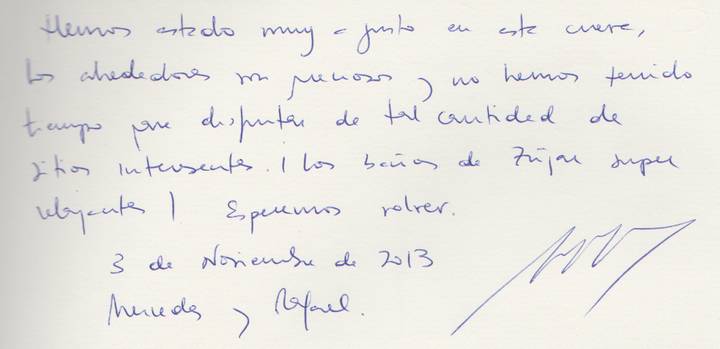 Hemos estado muy a gusto en esta cueva,
los alrededores son preciosos y no hemos tenido
tiempo para disfrutar de tal cantidad de
sitios interesantes. ¡ Los baños de Zújar super
relajantes ! Esperemos volver.
3 de Noviembre de 2013
Mercedes y Rafael.